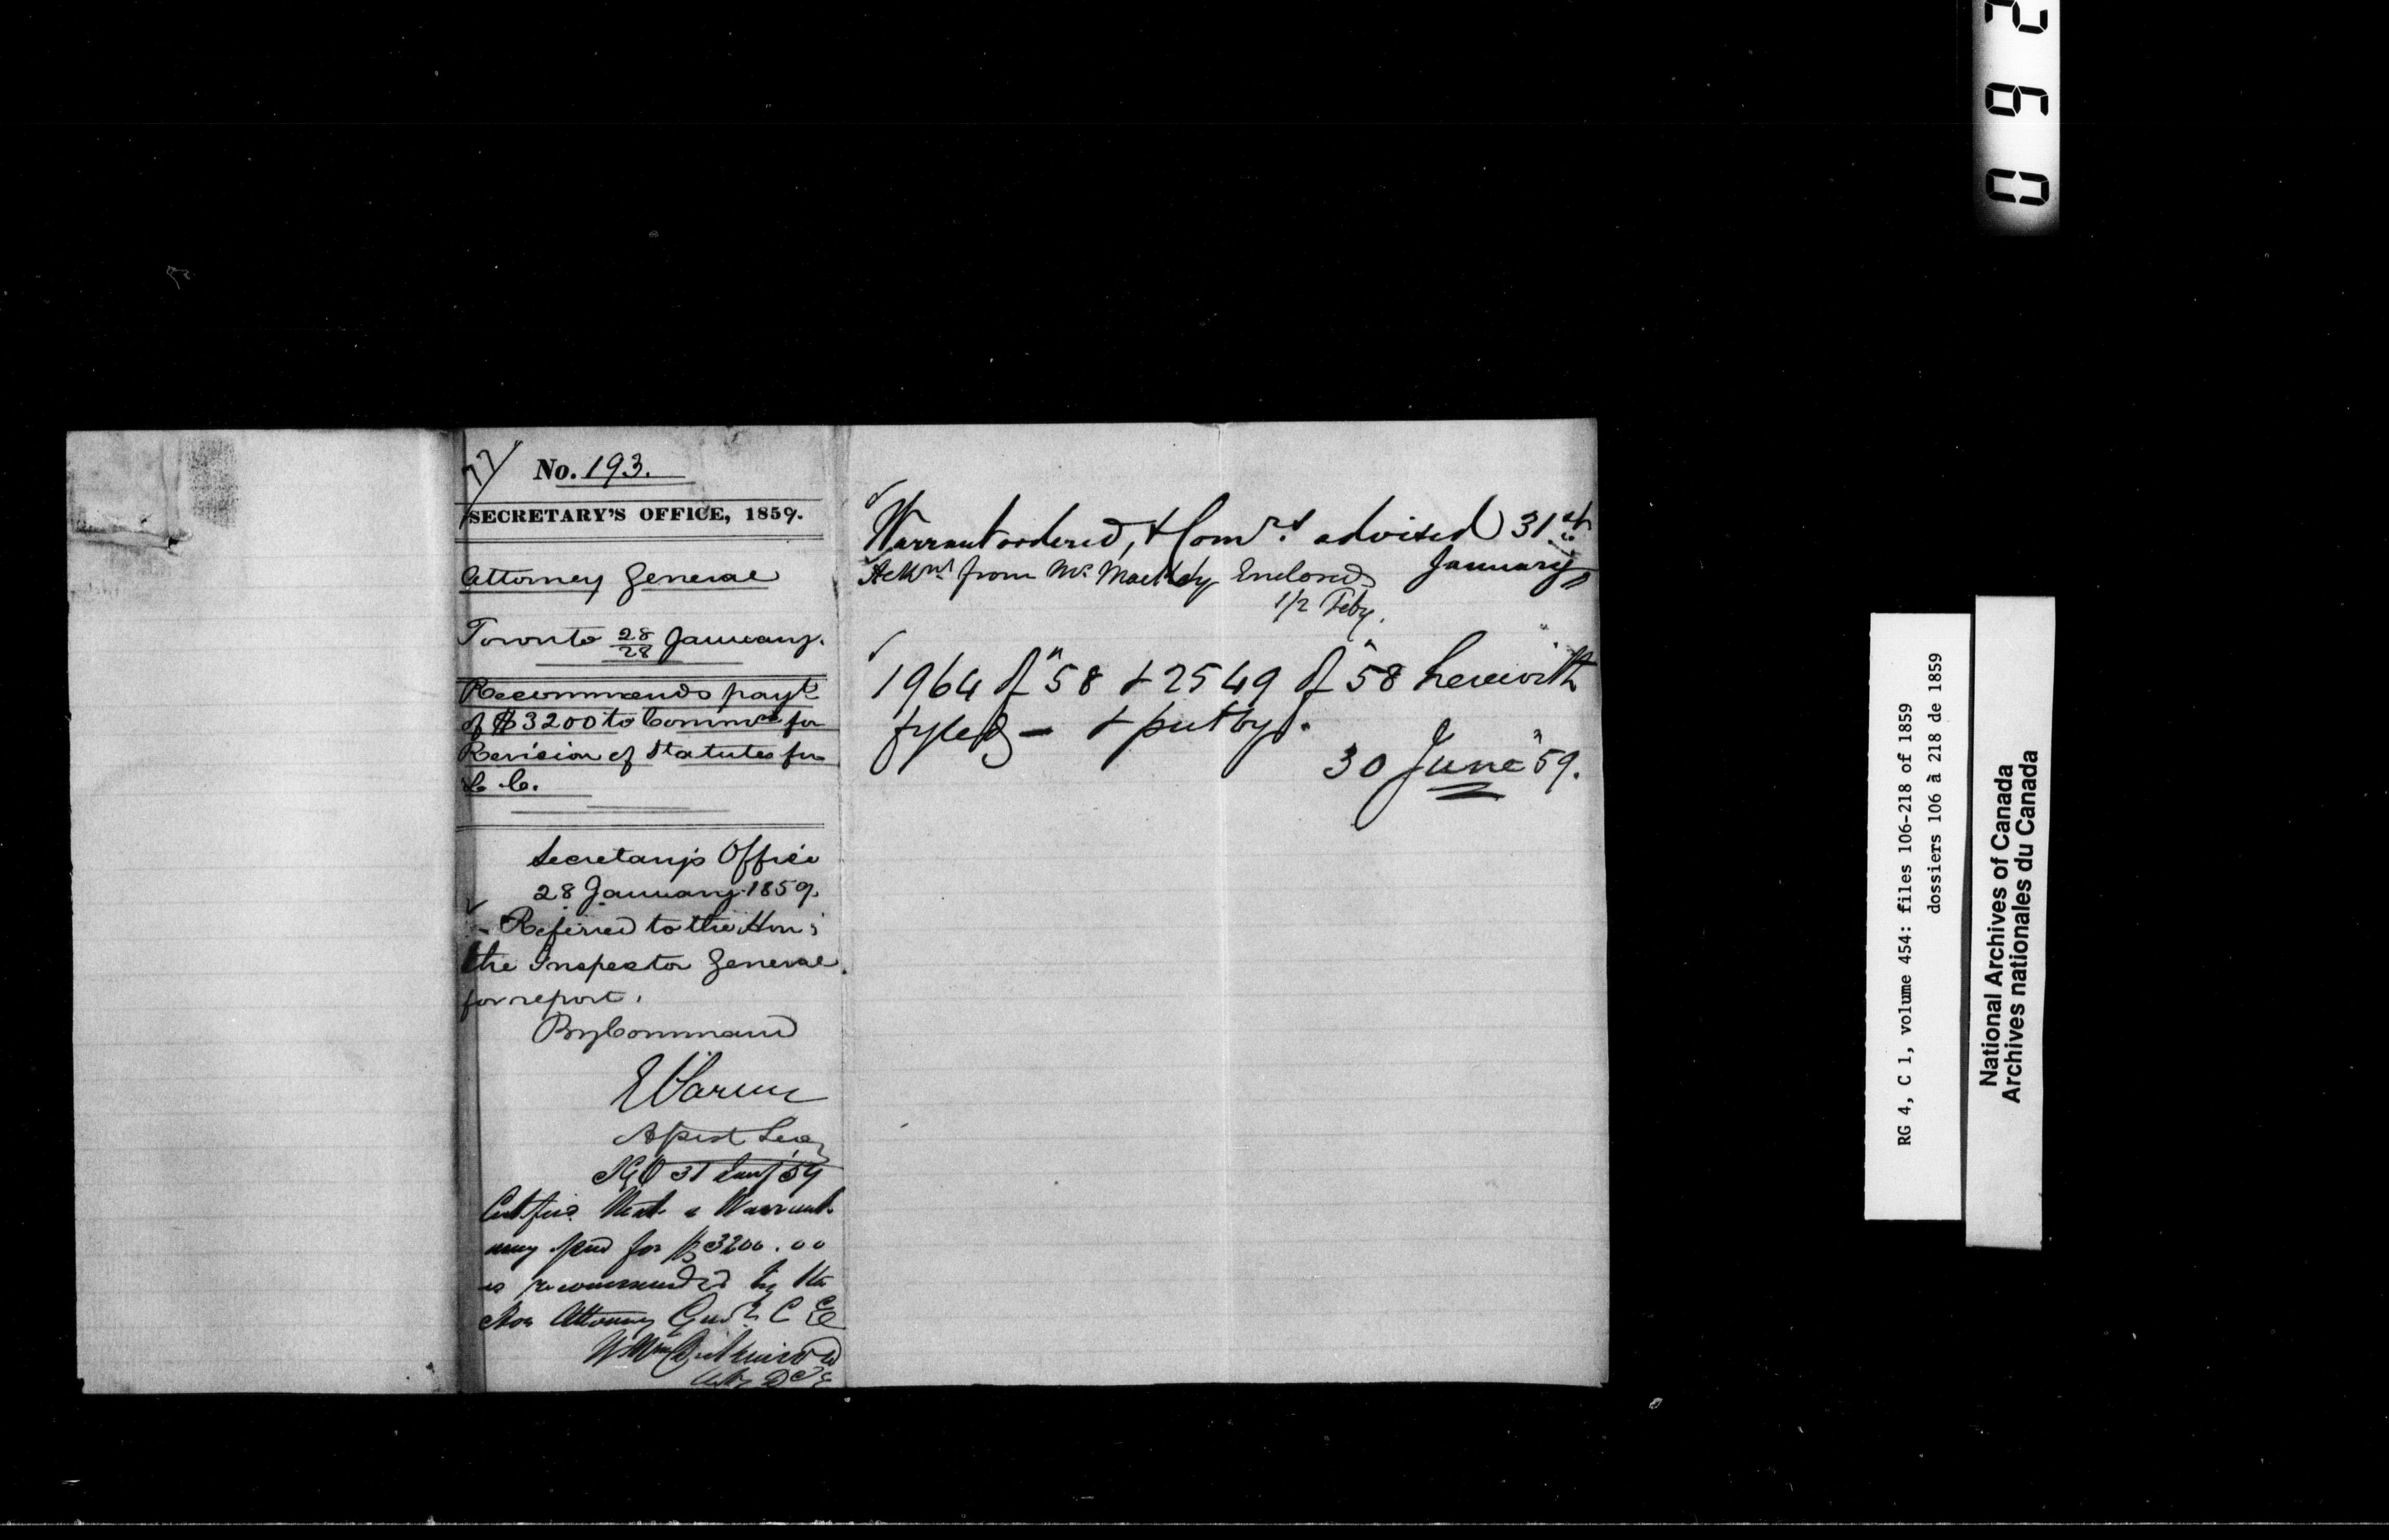 77/
No. 193.
SECRETARY'S OFFICE, 1859.
Attorney General
Toronto 28/28 January.
Recommends payt
of $3200 to Commrs for
Revision of Statutes for
L. C.
Secretary's Office
28 January 1859.
Referred to the Hon:
the Inspector General
for report.
By Command
E Parent
Asst Secy
IGO 31 Jany 59
Certifies that a Warrant
may for $3200.00
as recommended by the
Hon Attorney Genl C E
Warrant ordered, & Comrs advised 31st
January
Ackmt from Mr Mackay Enclosed
1/2 Feby.
1964 of "58 & 2549 of "58 herewith
fyled — & put by.
30 June "59.
0 6 2
RG 4, C 1, volume 454: files 106-218 of 1859
dossiers 106 à 218 de 1859
National Archives of Canada
Archives nationales du Canada